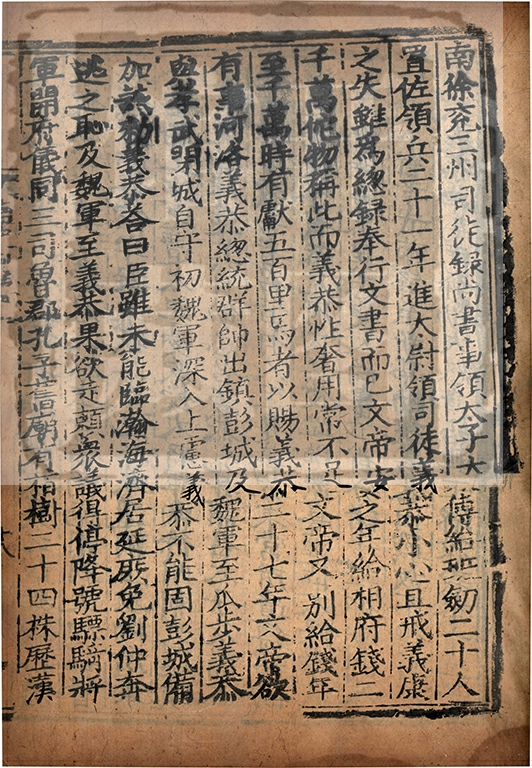 南徐兖三州司徒録尚書事領太子太傅給班劒二十人
置佐領兵二十一年進太尉領司徒義恭小心且戒義康
之失雖爲總録奉行文書而已文帝安之年給相府錢二
千萬他物稱此而義恭性奢用常不足文帝又別給錢年
至千萬時有獻五百里馬者以賜義恭二十七年文帝欲
有事河洛義恭總統群帥出鎮彭城及魏軍至瓜步義恭
與孝武閉城自守初魏軍深入上慮義恭不能固彭城備
加誡勒義恭荅曰臣雖未能臨瀚海濟居延庶免劉仲奔
逃之恥及魏軍至義恭果欲走賴衆議得停降號驃騎將
軍開府儀同三司魯郡孔子舊廟有栢樹二十四株歷漢